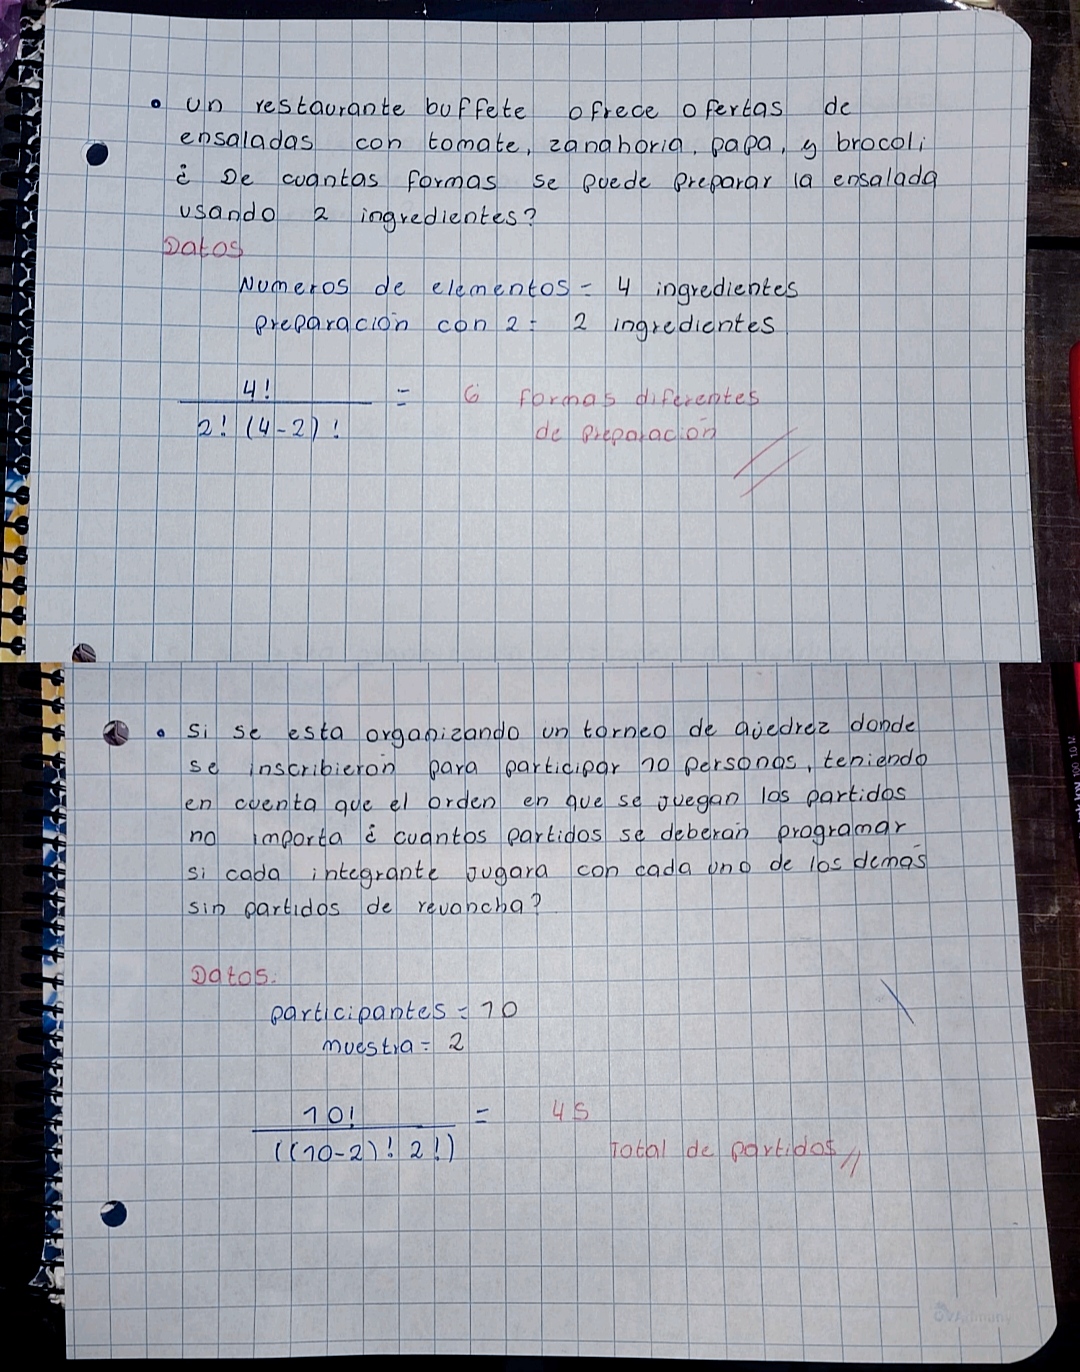 • un restaurante buffete ofrece ofertas de
ensaladas con tomate, zanahoria, papa, y brocoli
¿ De cuantas formas se puede preparar la ensalada
usando 2 ingredientes?
Datos
Numeros de elementos = 4 ingredientes
preparación con 2 = 2 ingredientes
4!
2! (4-2)!
= 6 formas diferentes
de preparación
• si se esta organizando un torneo de ajedrez donde
se inscribieron para participar 10 personas, teniendo
en cuenta que el orden en que se juegan los partidos
no importa ¿ cuantos partidos se deberán programar
si cada integrante jugara con cada uno de los demás
sin partidos de revancha?
Datos.
participantes = 10
muestra = 2
10!
((10-2)! 2!)
= 45
Total de partidos